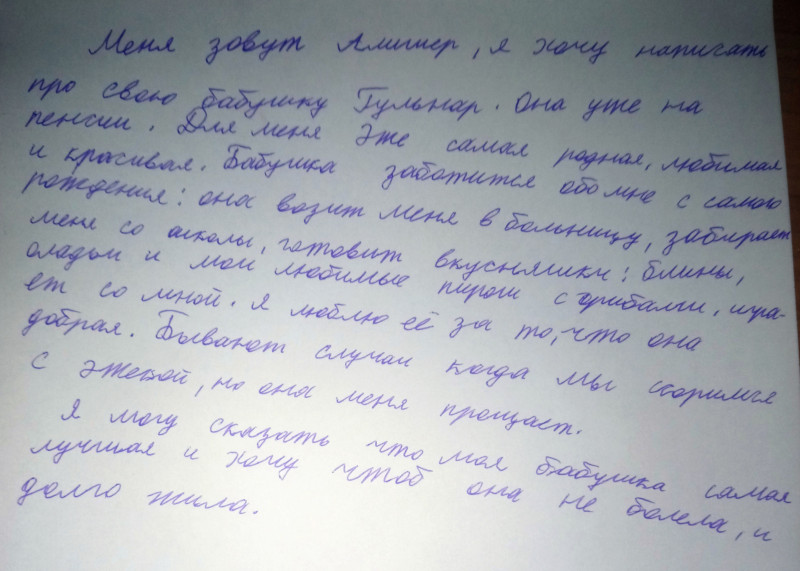 Меня зовут Амишер, я хочу написать
про свою бабушку Гульнар. Она уже на
пенсии. Для меня эже самая родная, любимая
и красивая. Бабушка заботится обо мне с самого
рождения: она возит меня в больницу, забирает
меня со школы, готовит вкусняшки: блины,
оладьи и мои любимые пироги с грибами, игра-
ет со мной. Я люблю её за то, что она
добрая. Бывают случаи когда мы ссоримся
с эжекой, но она меня прощает.
Я могу сказать что моя бабушка самая
лучшая и хочу чтоб она не болела, и
долго жила.